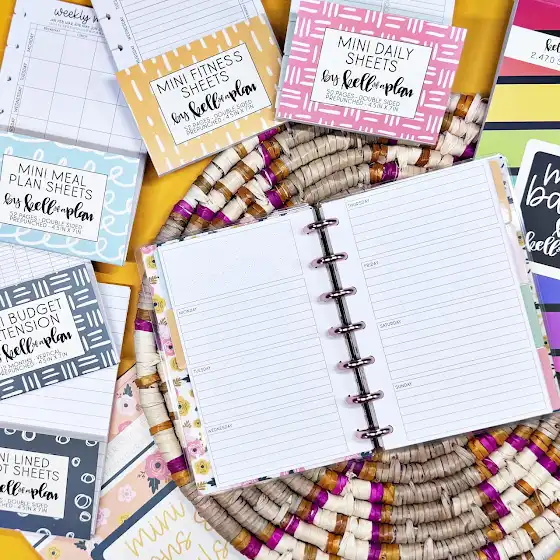 weekly
MINI FITNESS
SHEETS
by kell of a plan
52 PAGES · DOUBLE SIDED
PREPUNCHED · 4.5IN X 7IN
MINI DAILY
SHEETS
by kell of a plan
50 PAGES · DOUBLE SIDED
PREPUNCHED · 4.5IN X 7IN
MINI MEAL
PLAN SHEETS
by kell of a plan
52 PAGES · DOUBLE SIDED
PREPUNCHED · 4.5IN X 7IN
BUDGET
TENSION
kell of a plan
MONTHS · VERTICAL
PREPUNCHED · 4.5IN X 7IN
NI LINED
OT SHEETS
kell of a plan
MONDAY
TUESDAY
WEDNESDAY
THURSDAY
FRIDAY
SATURDAY
SUNDAY
kell
mini